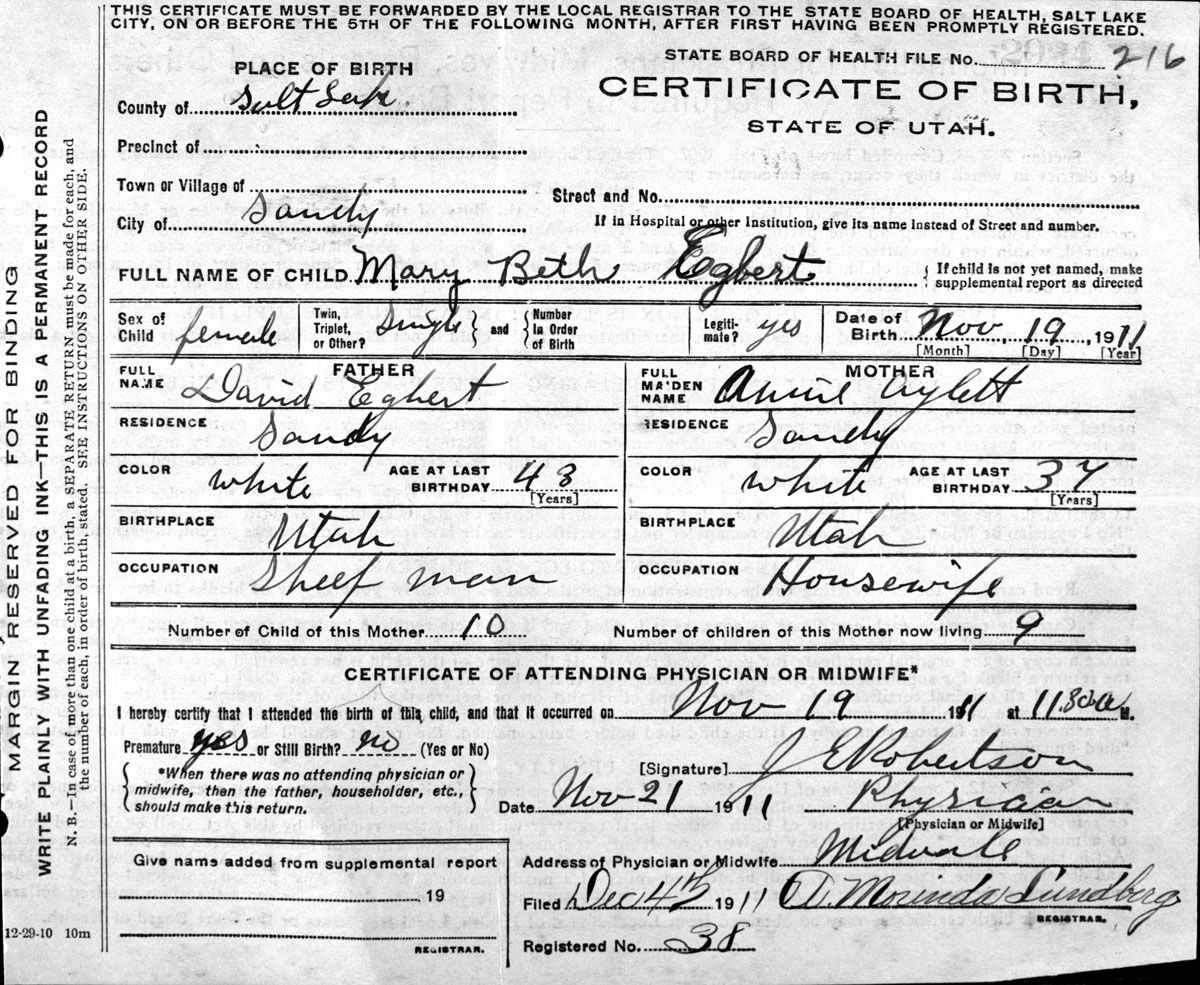 THIS CERTIFICATE MUST BE FORWARDED BY THE LOCAL REGISTRAR TO THE STATE BOARD OF HEALTH, SALT LAKE
CITY, ON OR BEFORE THE 5TH OF THE FOLLOWING MONTH, AFTER FIRST HAVING BEEN PROMPTLY REGISTERED.
MARGIN RESERVED FOR BINDING
WRITE PLAINLY WITH UNFADING INK—THIS IS A PERMANENT RECORD
N. B.—In case of more than one child at a birth, a SEPARATE RETURN must be made for each, and
the number of each, in order of birth, stated. SEE INSTRUCTIONS ON OTHER SIDE.
STATE BOARD OF HEALTH FILE No. 216
PLACE OF BIRTH
CERTIFICATE OF BIRTH,
County of Salt Lake
STATE OF UTAH.
Precinct of
Town or Village of
Street and No.
City of Sandy
If in Hospital or other Institution, give its name instead of Street and number.
FULL NAME OF CHILD Mary Beth Egbert { If child is not yet named, make
supplemental report as directed
Sex of Child female Twin, Triplet, or Other? Single and Number in Order of Birth Legiti-mate? yes Date of Birth Nov, 19, 1911
[Month] [Day] [Year]
FATHER MOTHER
FULL NAME David Egbert FULL MAIDEN NAME Annie Aylett
RESIDENCE Sandy RESIDENCE Sandy
COLOR white AGE AT LAST BIRTHDAY 43 COLOR white AGE AT LAST BIRTHDAY 37
[Years] [Years]
BIRTHPLACE Utah BIRTHPLACE Utah
OCCUPATION Sheep man OCCUPATION Housewife
Number of Child of this Mother 10 Number of children of this Mother now living 9
CERTIFICATE OF ATTENDING PHYSICIAN OR MIDWIFE*
I hereby certify that I attended the birth of this child, and that it occurred on Nov 19 1911 at 11.30 a M.
Premature yes or Still Birth? no (Yes or No)
*When there was no attending physician or
midwife, then the father, householder, etc.,
should make this return.
[Signature] J E Robertson
Date Nov 21 1911 Physician
[Physician or Midwife]
Give name added from supplemental report
19
REGISTRAR.
Address of Physician or Midwife Midvale
Filed Dec 4th 1911 A. Lundberg
REGISTRAR.
Registered No. 38
12-29-10 10m